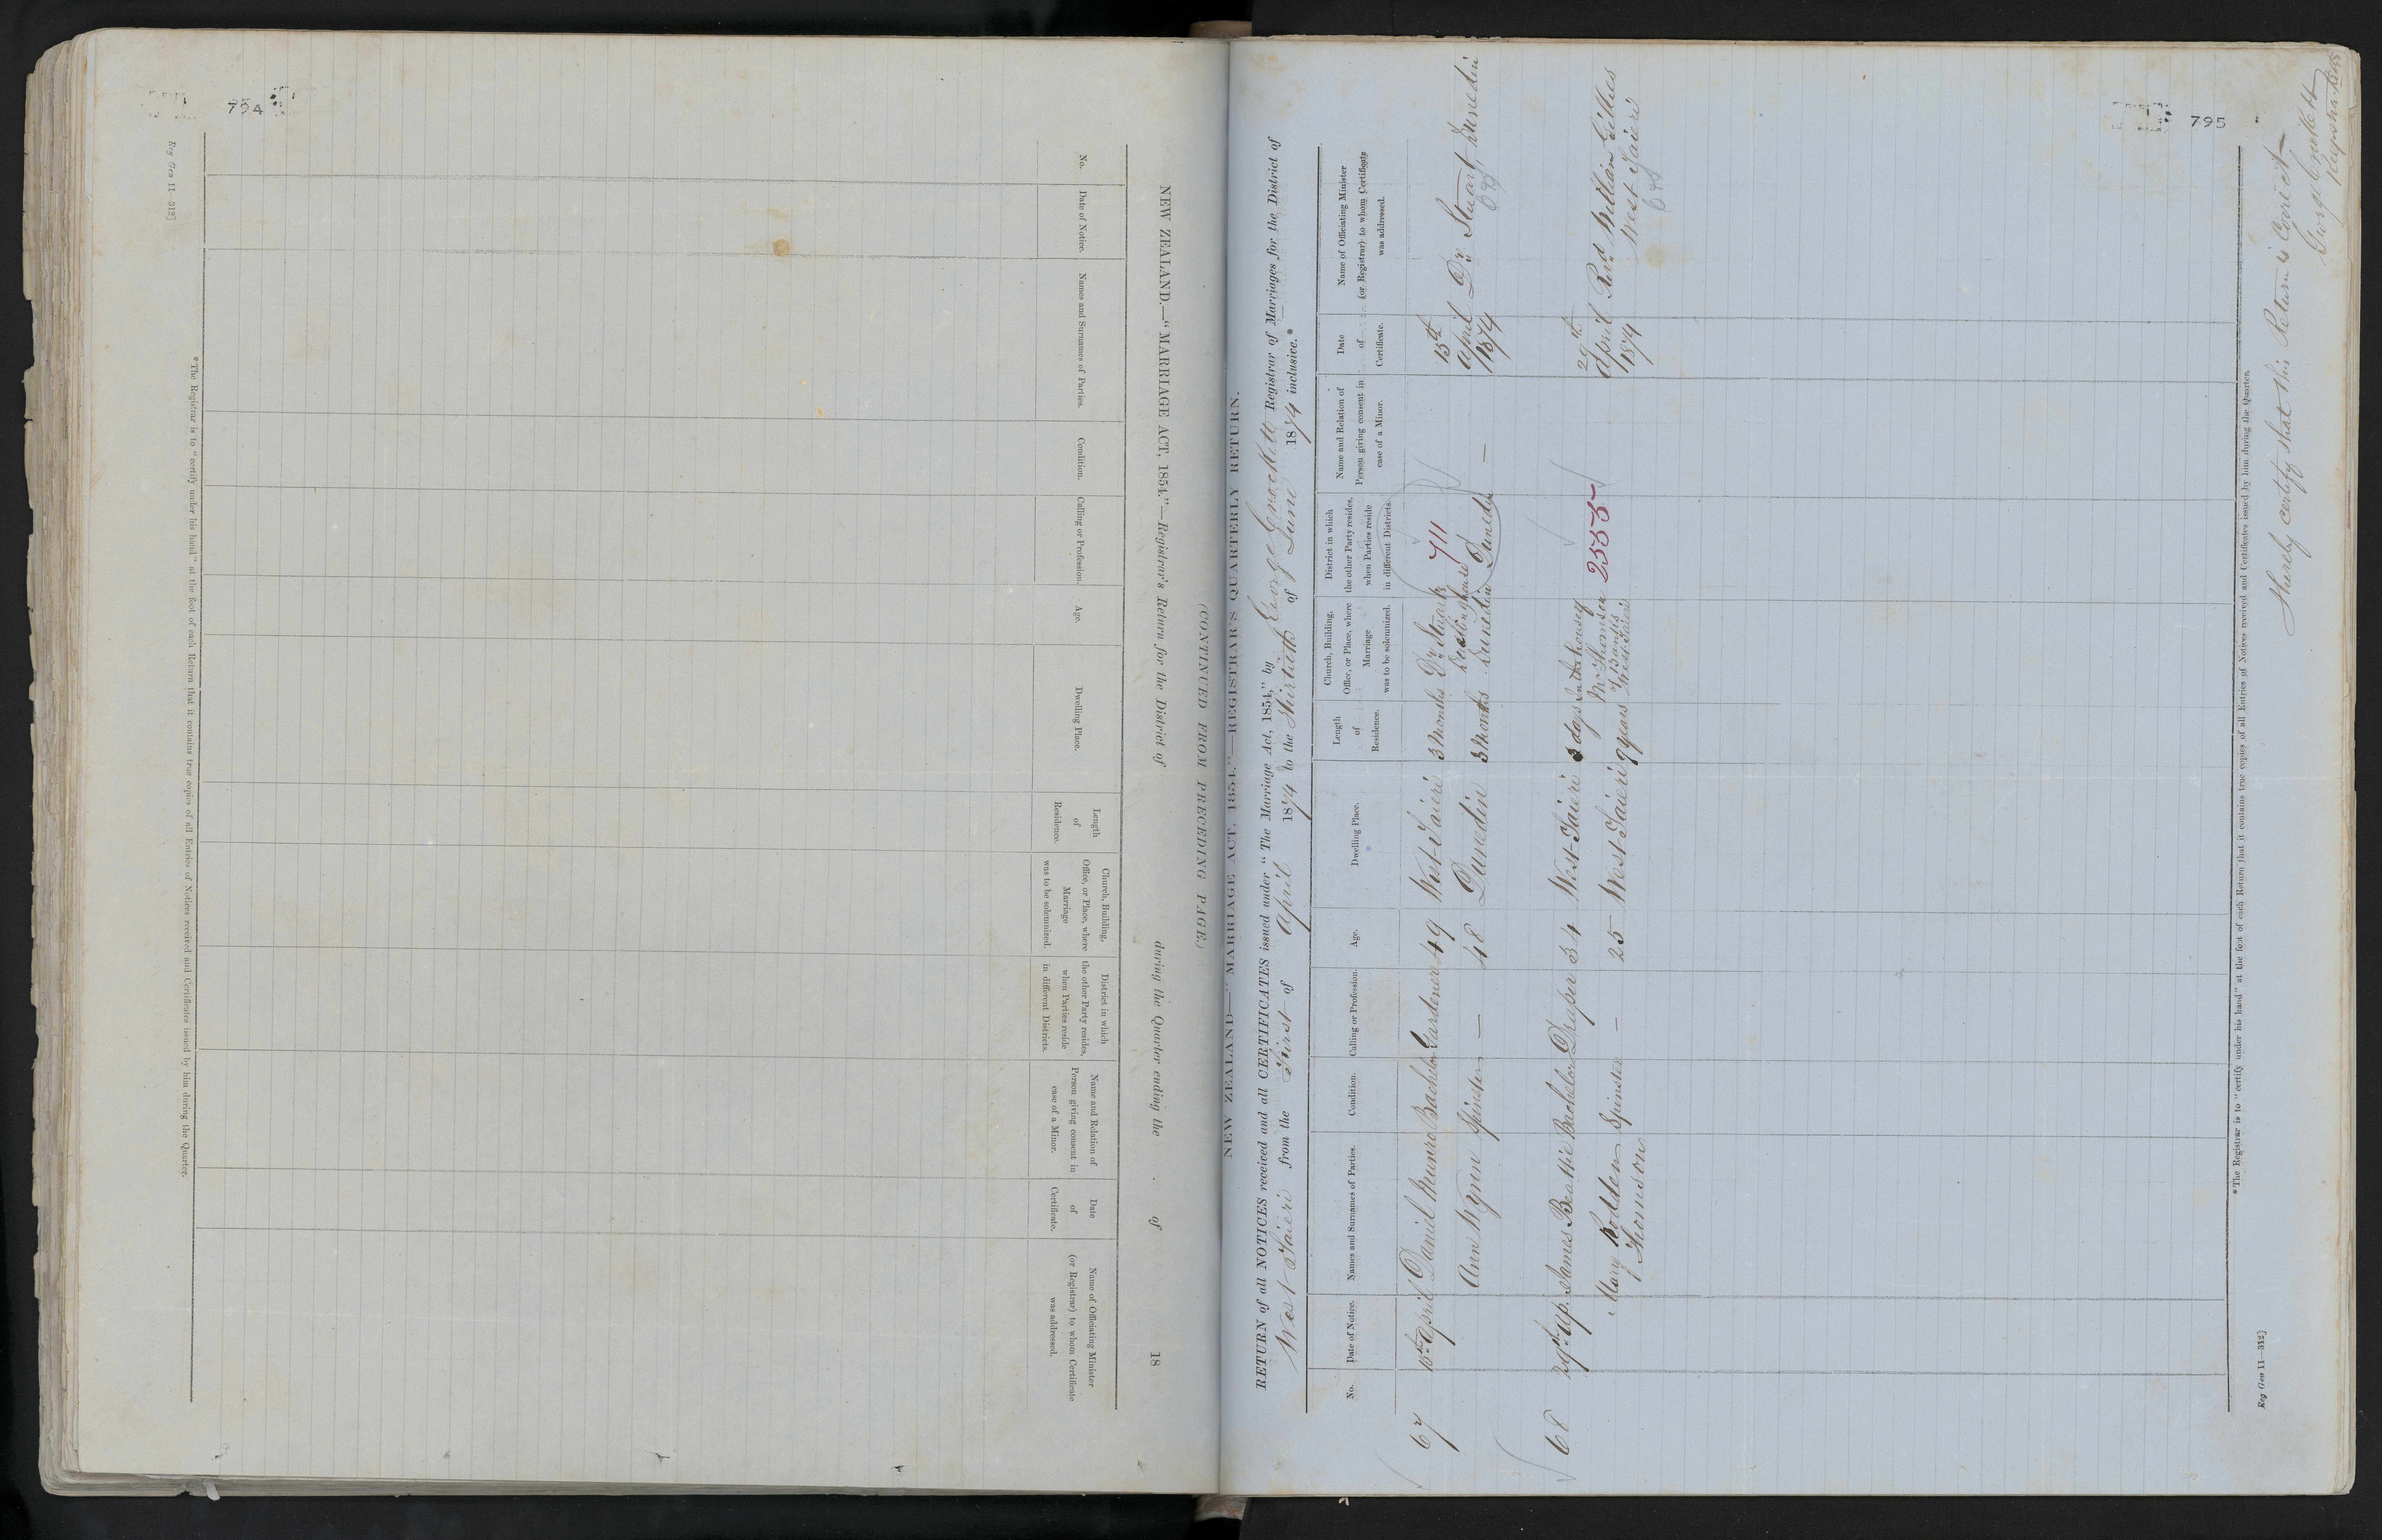 794
NEW ZEALAND.—"MARRIAGE ACT, 1854."—Registrar's Return for the District of during the Quarter ending the of 18
No.
Date of Notice.
Names and Surnames of Parties.
Condition.
Calling or Profession.
Age.
Dwelling Place.
Length
of
Residence.
Church, Building,
Office, or Place, where
Marriage
was to be solemnized.
District in which
the other Party resides,
when Parties reside
in different Districts.
Name and Relation of
Person giving consent in
case of a Minor.
Date
of
Certificate.
Name of Officiating Minister
(or Registrar) to whom Certificate
was addressed.
*The Registrar is to "certify under his hand" at the foot of each Return that it contains true copies of all Entries of Notices received and Certificates issued by him during the Quarter.
Reg Gen 11—312]
795
(CONTINUED FROM PRECEDING PAGE.)
NEW ZEALAND—"MARRIAGE ACT, 1854."—REGISTRAR'S QUARTERLY RETURN.
RETURN of all NOTICES received and all CERTIFICATES issued under "The Marriage Act, 1854," by George Crockett Registrar of Marriages for the District of
West Taieri from the First of April 1874 to the Thirtieth of June 1874 inclusive.*
No.
Date of Notice.
Names and Surnames of Parties.
Condition.
Calling or Profession.
Age.
Dwelling Place.
Length
of
Residence.
Church, Building,
Office, or Place, where
Marriage
was to be solemnized.
District in which
the other Party resides,
when Parties reside
in different Districts.
Name and Relation of
Person giving consent in
case of a Minor.
Date
of
Certificate.
Name of Officiating Minister
(or Registrar) to whom Certificate
was addressed.
67 15th April Daniel Munro Bachelor Gardener 49 West Taieri 3 Months Dr Stuarts 711 15th April 1874 Dr Stuart, Dunedin
Ann Wynn Spinster — 48 Dunedin 3 Months Dunedin Dunedin —
68 29th Ap. James Beattie Bachelor Draper 34 West Taieri 3 days In the house of 2555 29th April 1874 Revd William Gillies
Mary Rodden Spinster — 25 West Taieri 9 years Mr Thomson West Taieri
Thomson West Taieri
*The Registrar is to "certify under his hand" at the foot of each Return that it contains true copies of all Entries of Notices received and Certificates issued by him during the Quarter.
Reg Gen 11—312]
I hereby certify that this Return is Correct—
George Crockett
Registrar